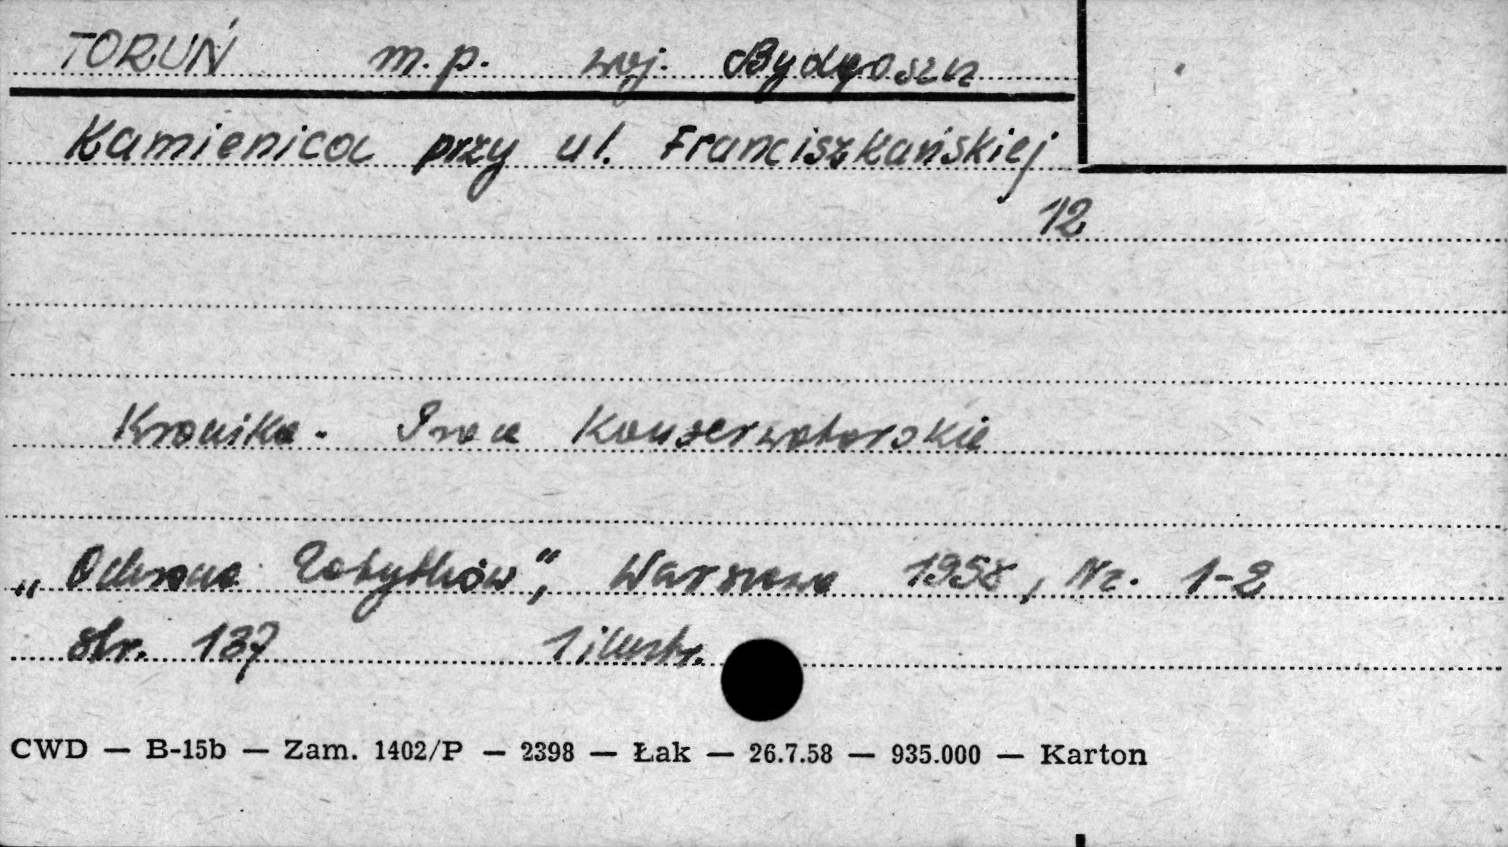 TORUŃ m.p. woj. Bydgoszcz
Kamienica przy ul. Franciszkańskiej
12
Kronika. Prace Konserwatorskie
„Ochrona Zabytków", Warszawa 1958, Nr. 1-2
str. 137 1 ilustr.
CWD — B-15b — Zam. 1402/P — 2398 — Łak — 26.7.58 — 935.000 — Karton